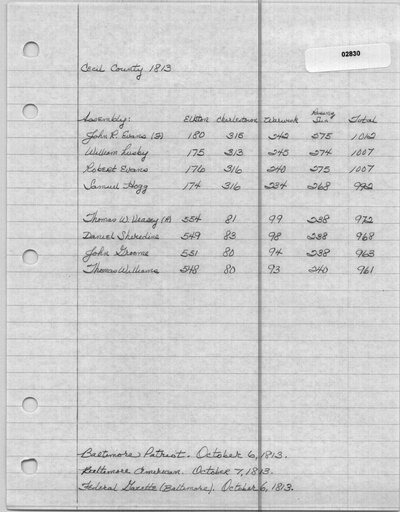 02830
Cecil County 1813
Assembly: Elkton Charlestown Warwick Rising Sun Total
John R. Evans 180 315 242 275 1012
William Lusby 175 313 245 274 1007
Robert Evans 176 316 240 275 1007
Samuel Hogg 174 316 234 268 992
Thomas W. Veazey 554 81 99 238 972
Daniel Sheredine 549 83 98 238 968
John Groome 551 80 94 238 963
Thomas Williams 548 80 93 240 961
Baltimore Patriot. October 6, 1813.
Baltimore American. October 7, 1813.
Federal Gazette (Baltimore). October 6, 1813.